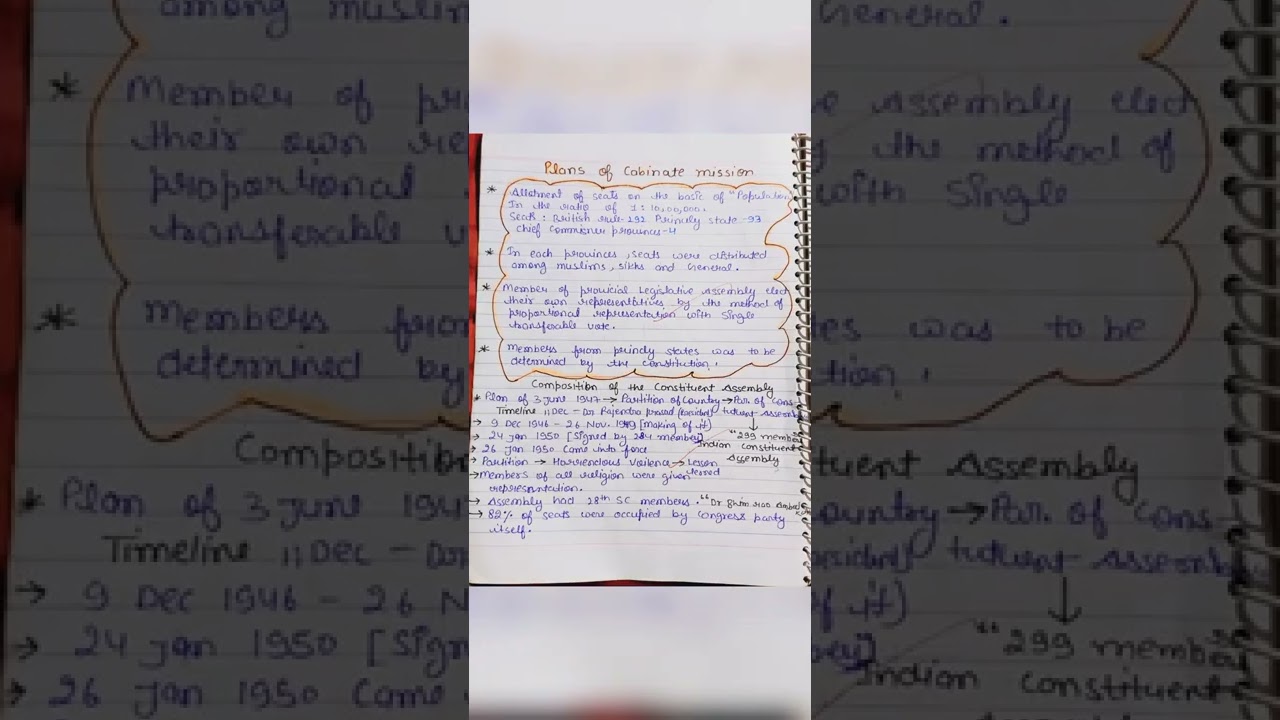 Plans of Cabinate mission
* Allotment of seats on the basic of "Population
In the ratio of 1:10,00,000.
Seats: British rule-292 Princly state-93
chief Commisner provinces-4
* In each provinces, seats were distributed
among muslims, sikhs and General.
* Member of provicial Legislative Assembly elect
their own representatives by the method of
proportional representation with Single
transferable vote.
* Members from princly states was to be
determined by the constitution.
Composition of the Constituent Assembly
* Plan of 3 June 1947 → Partition of Country → Par. of Cons-
Timeline 11 Dec - Dr Rajendra prasad (President) tutuent Assemb
→ 9 Dec 1946 - 26 Nov. 1949 [making of it)
"299 member
→ 24 Jan 1950 [Signed by 284 member]
Indian Constituent
→ 26 Jan 1950 Came into force
Assembly
→ Partition → Horrencious Voilence → Lesson
→ Members of all religion were given
representation.
→ Assembly had 28th SC members. "Dr. Bhim rao
→ 82% of seats were occupied by Congress party
itself.